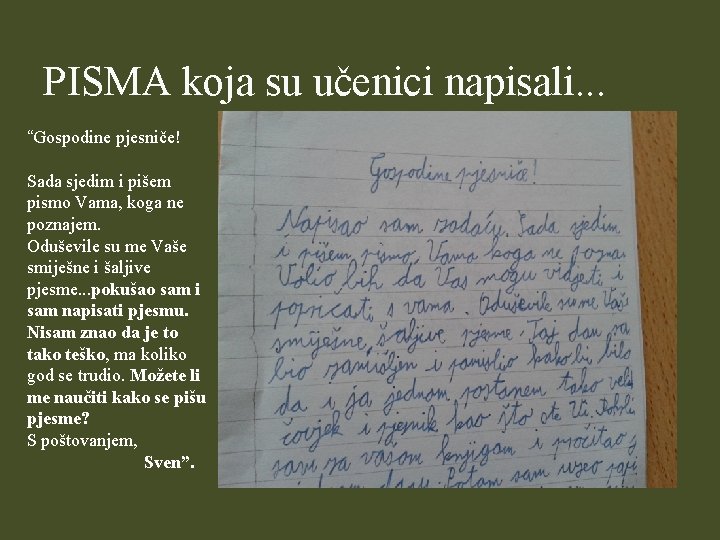 PISMA koja su učenici napisali...
“Gospodine pjesniče!
Sada sjedim i pišem
pismo Vama, koga ne
poznajem.
Oduševile su me Vaše
smiješne i šaljive
pjesme...pokušao sam i
sam napisati pjesmu.
Nisam znao da je to
tako teško, ma koliko
god se trudio. Možete li
me naučiti kako se pišu
pjesme?
S poštovanjem,
Sven”.
Gospodine pjesniče!
Napisao sam zadaću. Sada sjedim
i pišem pismo Vama koga ne pozna
Volio bih da Vas mogu vidjeti i
popricati s vama. Oduševile su me Vaše
smiješne, šaljive pjesme. Taj dan sa
bio zamišljen i pomislio kako bi bilo
da i ja jednom postanem tako veli
čovjek i pjesnik kao što ste Vi.
sam za vašom knjigom i pročitao
Potom sam uzeo